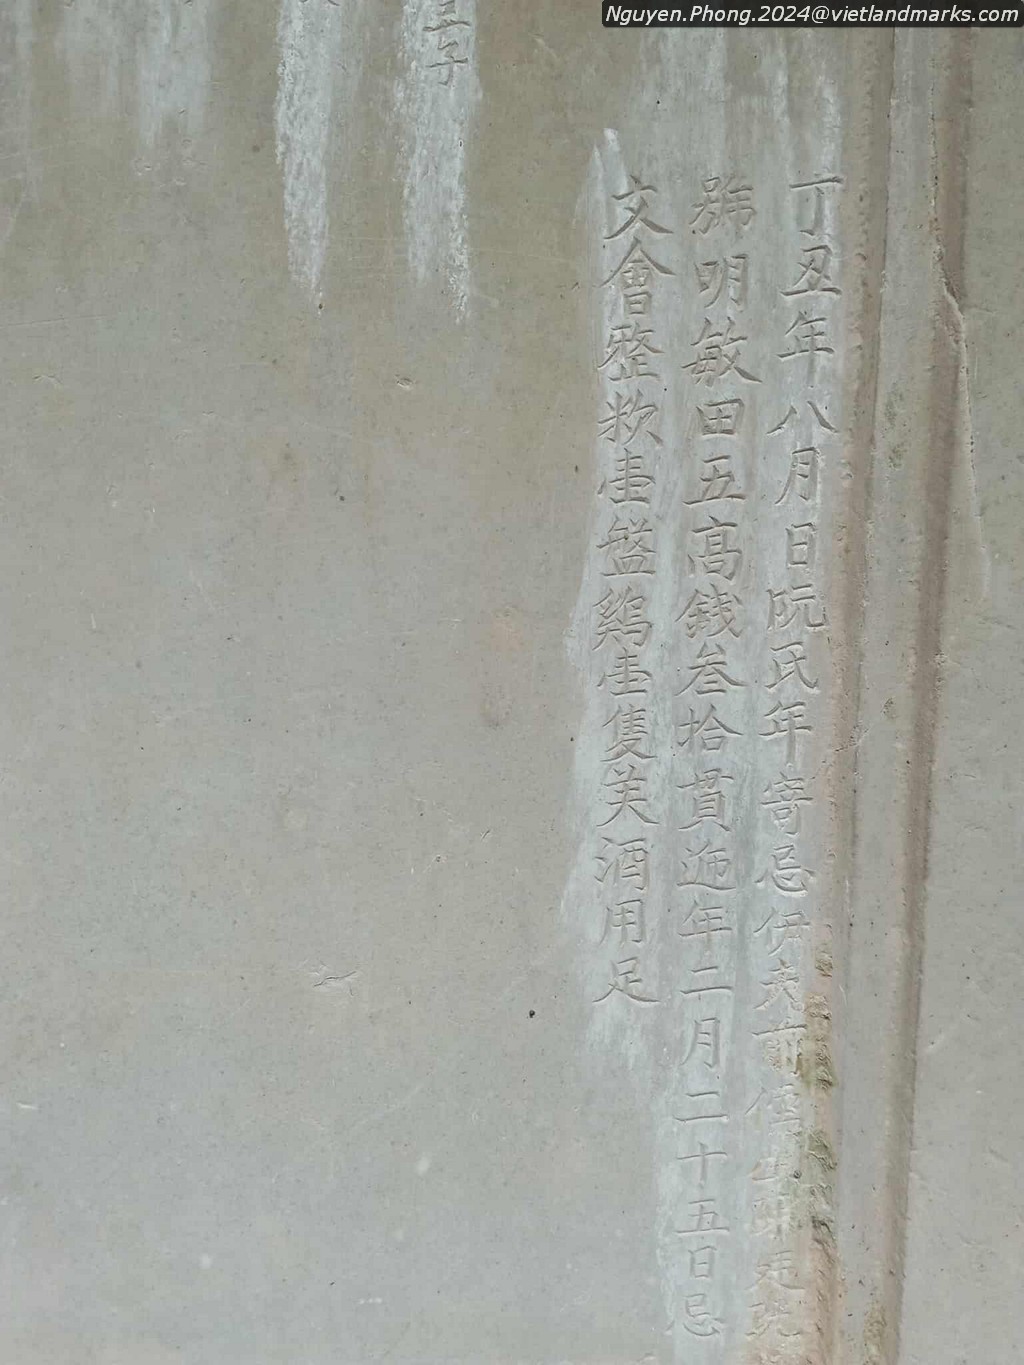 Nguyen.Phong.2024@vietlandmarks.com
子
丁丑年八月日阮氏年寄忌伊夫前
號明敏田五高錢叁拾貫迩年二月二十五日忌
文會整粏壹盤鷄壹隻芙酒用足